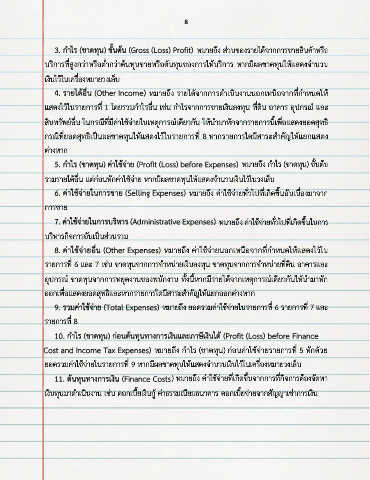 8
3. กำไร (ขาดทุน) ขั้นต้น (Gross (Loss) Profit) หมายถึง ส่วนของรายได้จากการขายสินค้าหรือ
บริการที่สูงกว่าหรือต่ำกว่าต้นทุนขายหรือต้นทุนของการให้บริการ หากมีผลขาดทุนให้แสดงจำนวน
เงินไว้ในเครื่องหมายวงเล็บ
4. รายได้อื่น (Other Income) หมายถึง รายได้จากการดำเนินงานนอกเหนือจากที่กำหนดให้
แสดงไว้ในรายการที่ 1 โดยรวมกำไรอื่น เช่น กำไรจากการขายเงินลงทุน ที่ดิน อาคาร อุปกรณ์ และ
สินทรัพย์อื่น ในกรณีที่มีค่าใช้จ่ายในเหตุการณ์เดียวกัน ให้นำมาหักจากรายการนี้เพื่อแสดงยอดสุทธิ
กรณีที่ยอดสุทธิเป็นผลขาดทุนให้แสดงไว้ในรายการที่ 8 หากรายการใดมีสาระสำคัญให้แยกแสดง
ต่างหาก
5. กำไร (ขาดทุน) ก่อนค่าใช้จ่าย (Profit (Loss) before Expenses) หมายถึง กำไร (ขาดทุน) ขั้นต้น
รวมรายได้อื่น แต่ก่อนหักค่าใช้จ่าย หากมีผลขาดทุนให้แสดงจำนวนเงินไว้ในวงเล็บ
6. ค่าใช้จ่ายในการขาย (Selling Expenses) หมายถึง ค่าใช้จ่ายทั่วไปที่เกิดขึ้นอันเนื่องมาจาก
การขาย
7. ค่าใช้จ่ายในการบริหาร (Administrative Expenses) หมายถึง ค่าใช้จ่ายทั่วไปที่เกิดขึ้นในการ
บริหารกิจการอันเป็นส่วนรวม
8. ค่าใช้จ่ายอื่น (Other Expenses) หมายถึง ค่าใช้จ่ายนอกเหนือจากที่กำหนดให้แสดงไว้ใน
รายการที่ 6 และ 7 เช่น ขาดทุนจากการจำหน่ายเงินลงทุน ขาดทุนจากการจำหน่ายที่ดิน อาคารและ
อุปกรณ์ ขาดทุนจากการหยุดงานของพนักงาน ทั้งนี้หากมีรายได้จากเหตุการณ์เดียวกันให้นำมาหัก
ออกเพื่อแสดงยอดสุทธิและหากรายการใดมีสาระสำคัญให้แยกออกต่างหาก
9. รวมค่าใช้จ่าย (Total Expenses) หมายถึง ยอดรวมค่าใช้จ่ายในรายการที่ 6 รายการที่ 7 และ
รายการที่ 8
10. กำไร (ขาดทุน) ก่อนต้นทุนทางการเงินและภาษีเงินได้ (Profit (Loss) before Finance
Cost and Income Tax Expenses) หมายถึง กำไร (ขาดทุน) ก่อนค่าใช้จ่ายรายการที่ 5 หักด้วย
ยอดรวมค่าใช้จ่ายในรายการที่ 9 หากมีผลขาดทุนให้แสดงจำนวนเงินไว้ในเครื่องหมายวงเล็บ
11. ต้นทุนทางการเงิน (Finance Costs) หมายถึง ค่าใช้จ่ายที่เกิดขึ้นจากการที่กิจการต้องจัดหา
เงินทุนมาดำเนินงาน เช่น ดอกเบี้ยเงินกู้ ค่าธรรมเนียมธนาคาร ดอกเบี้ยจ่ายจากสัญญาเช่าการเงิน